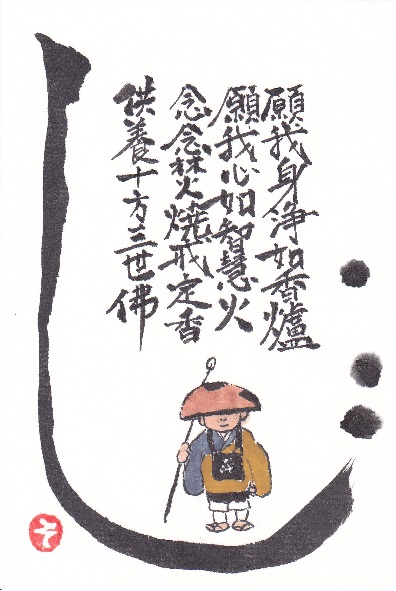 願我身浄如香爐
願我心如智慧火
念念焚焼戒定香
供養十方三世佛